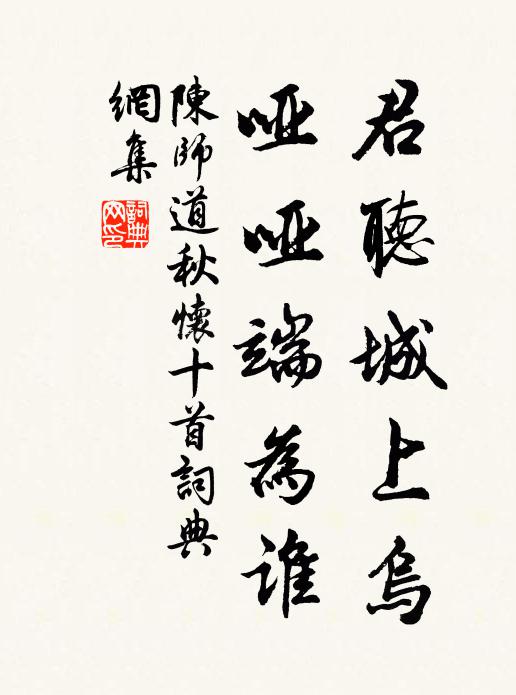 君聽城上烏
啞啞端為誰
陳師道秋懷十首詞典
網集
詞典
网印